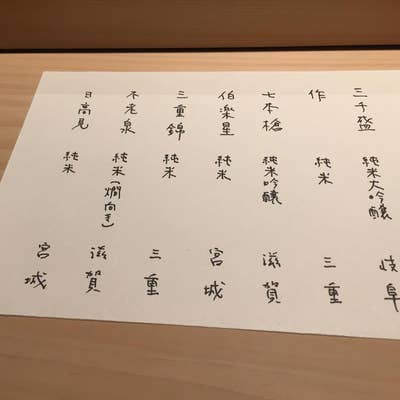 三千盛 純米大吟醸 岐阜
作 純米 三重
七本槍 純米吟醸 滋賀
伯楽星 純米 宮城
三重錦 純米 三重
不老泉 純米(燗向き) 滋賀
日高見 純米 宮城